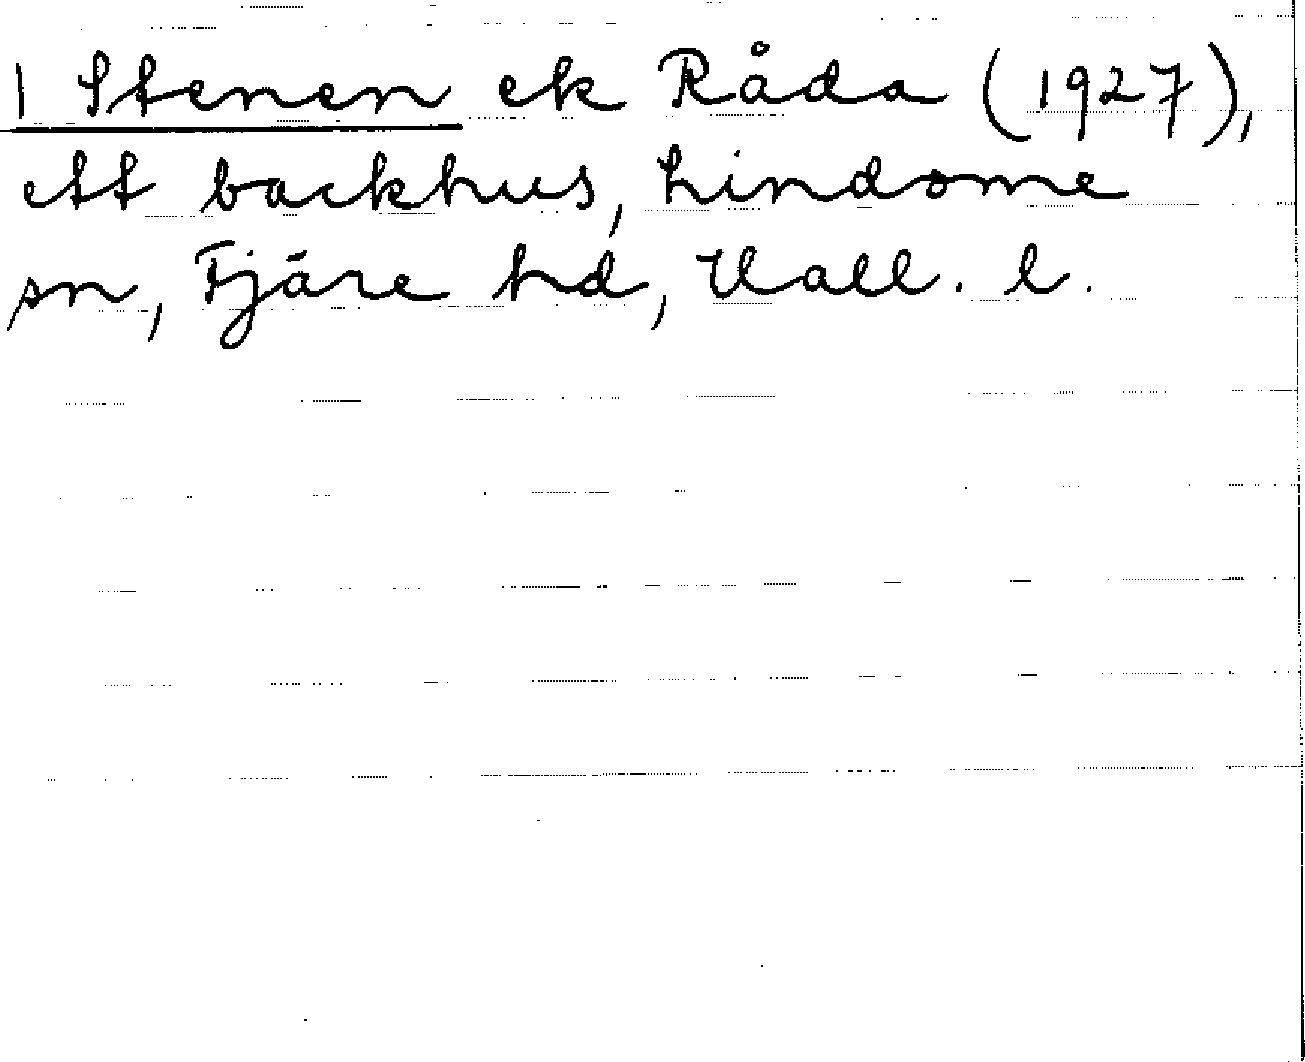 1 Stenen ek Råda (1927),
ett backhus, Lindome
sn, Fjäre hd, Hall. l.